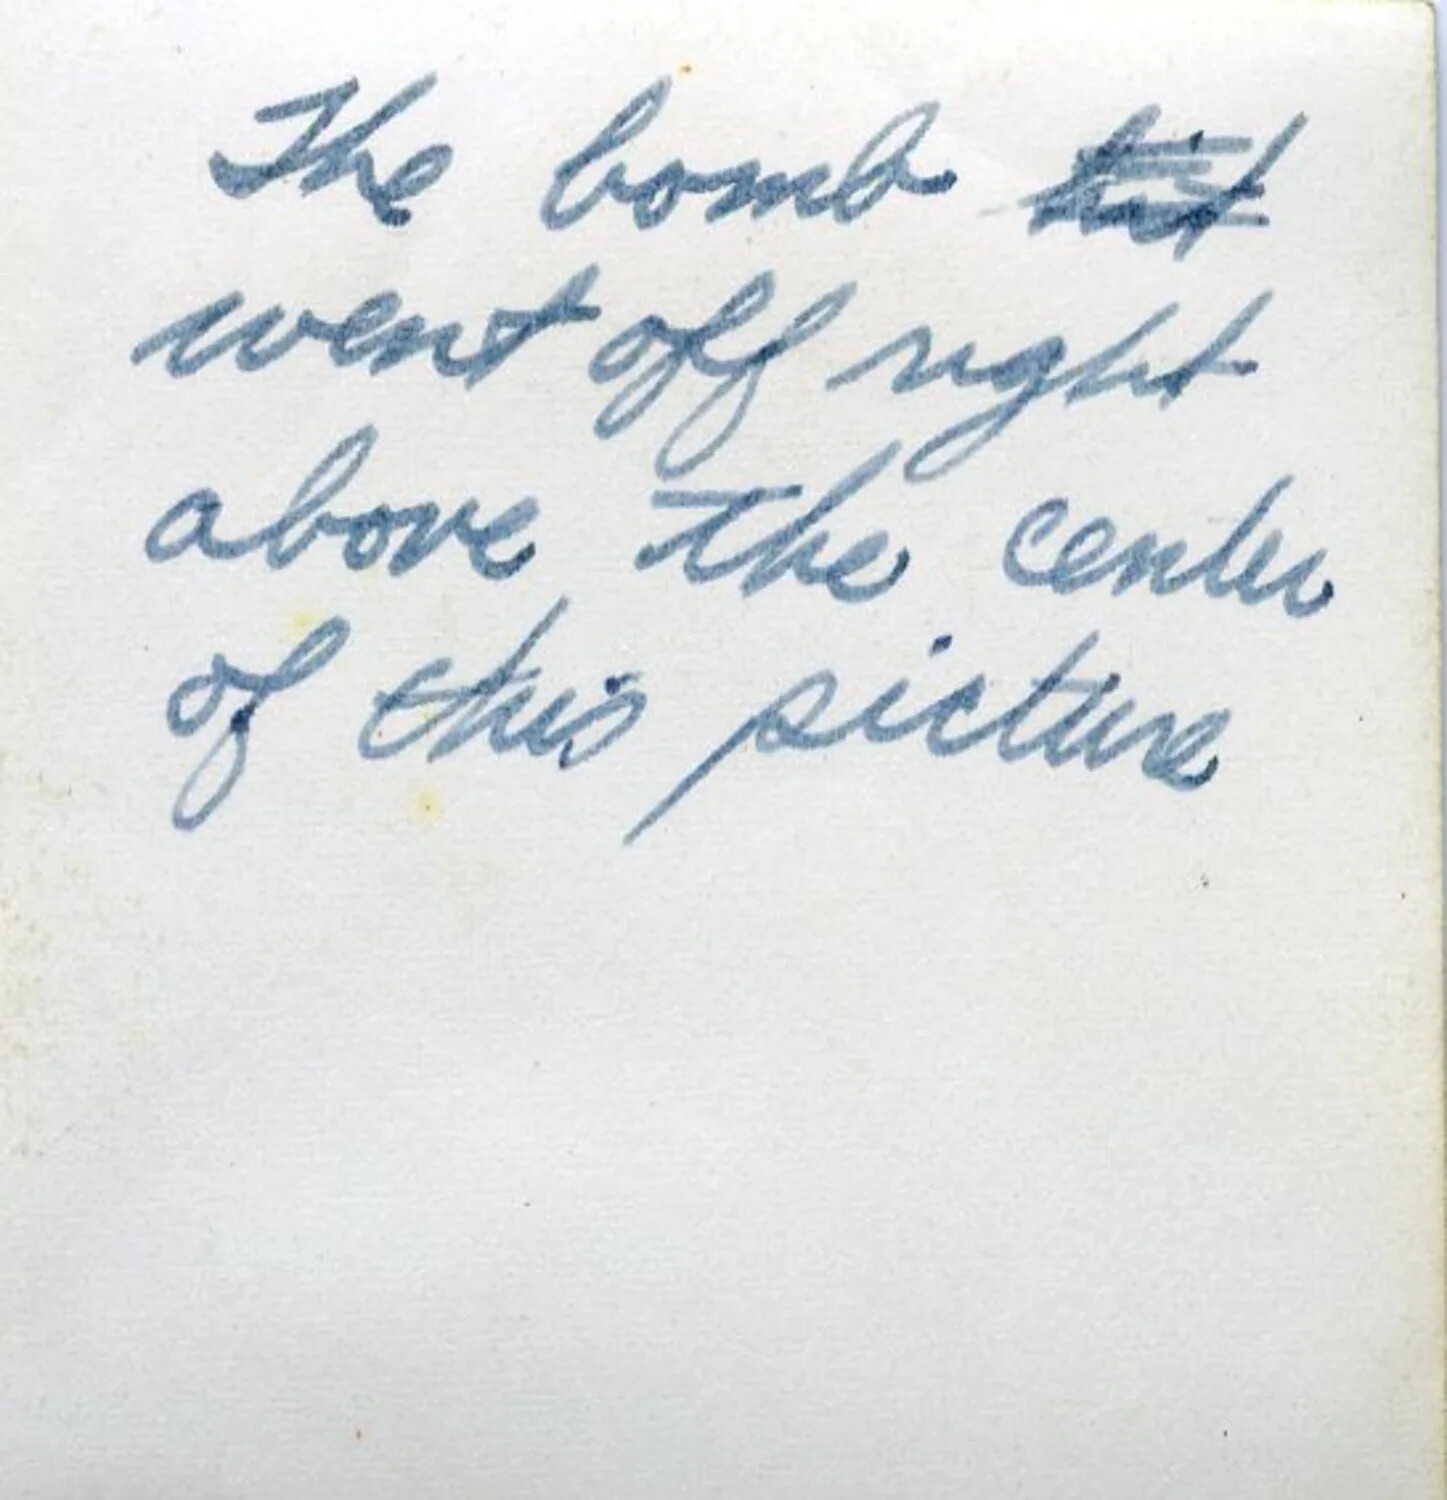 The bomb hit
went off right
above the center
of this picture